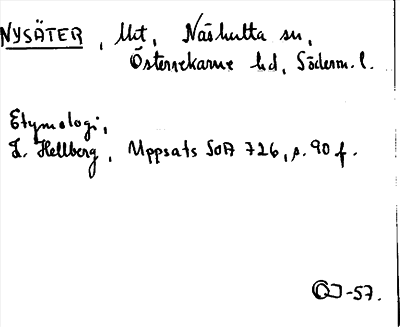 NYSÄTER, Utt, Näshulta sn,
Österrekarne hd, Söderm. l.
Etymologi,
L. Hellberg, Uppsats SOA 726, s. 90 f.
-57.